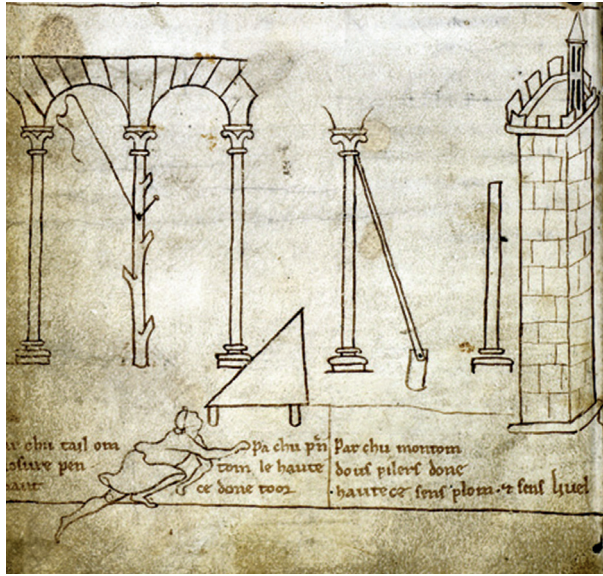 ar chu tail om
osure pen
aut
Pa chu pn̄
tom le haute
ce done toor
Par chu montom
dous pilers done
hautece sens plom. ⁊ sens livel